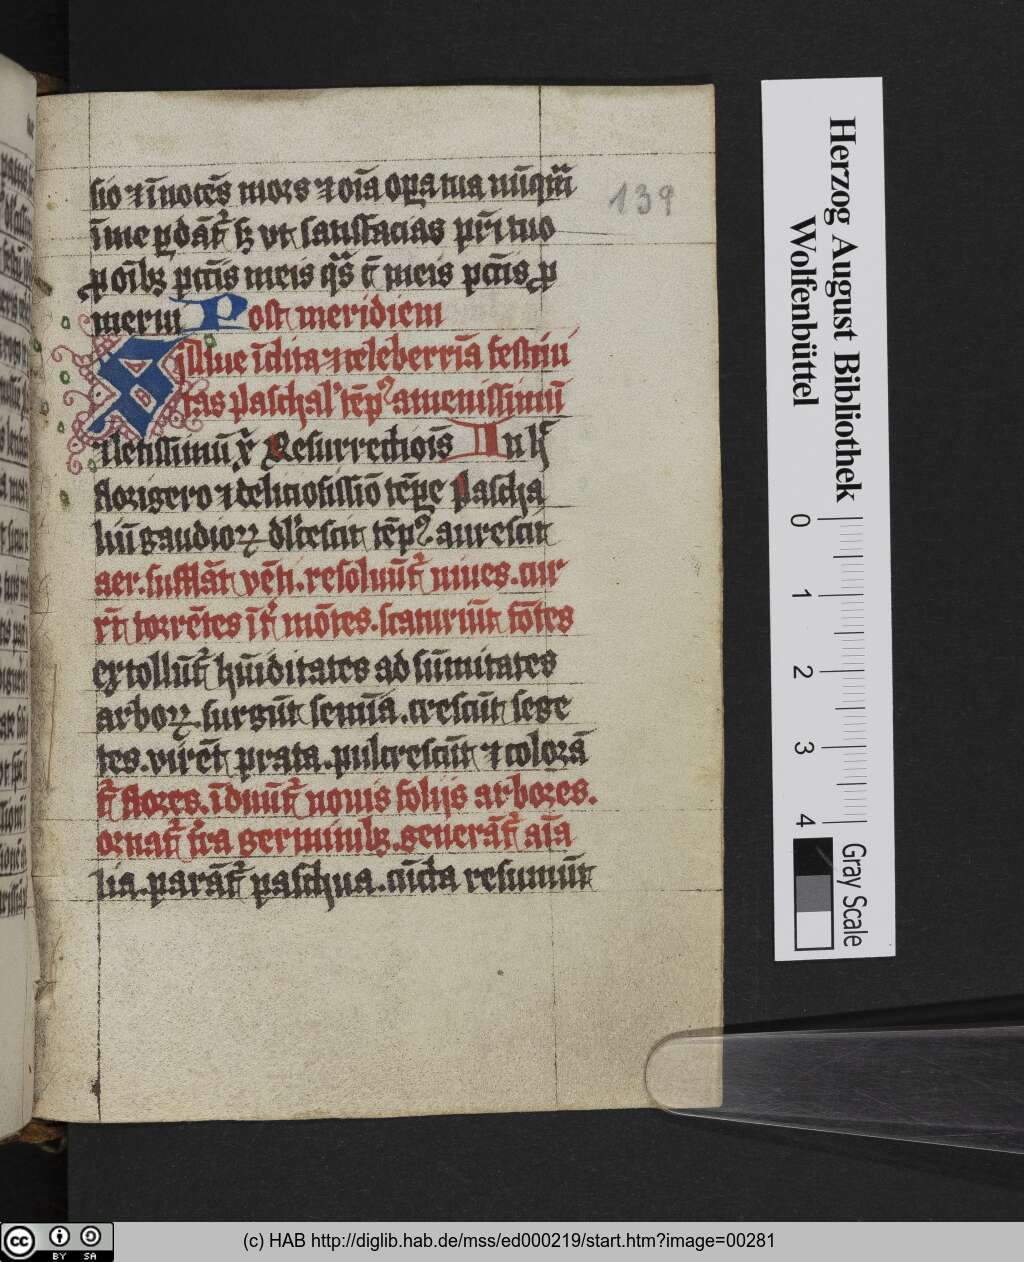 sio ⁊ īnocēs mors ⁊ oīa oꝑa tua nūqͣm
ī me ꝑdāt᷑ sꝫ vt satisfacias pr̄i tuo
ꝓ oībꝫ pcc̄is meis qͣs ē meis pcc̄is ꝓ
merui Post meridiem
Salue īclita ⁊ celeberrīa festiui
tas paschal' tēpꝰ amenissimū
⁊ letissimū xp̄i Resurrectiois̄ In h̄
florigero ⁊ deliciosissīo tēꝑe pascha
liū gaudioꝝ dl'cescit tēpꝰ. aurescit
aer. sufflāt vēti. resoluūt᷑ niues. cur
rūt torrētes īt᷑ mōtes. scaturiūt fōtes
extollūt᷑ hūiditates ad sūmitates
arboꝝ. surgūt semīa. crescūt sege
tes. virēt prata. pulcrescūt ⁊ colorā
t᷑ flores. īduūt᷑ nouis foliis arbores.
ornat᷑ t᷑ra germinibꝫ. generāt᷑ aīa
lia. parāt᷑ paschua. cūcta resumūt
139
Herzog August Bibliothek
Wolfenbüttel
0 1 2 3 4
Gray Scale
cc BY SA
(c) HAB http://diglib.hab.de/mss/ed000219/start.htm?image=00281